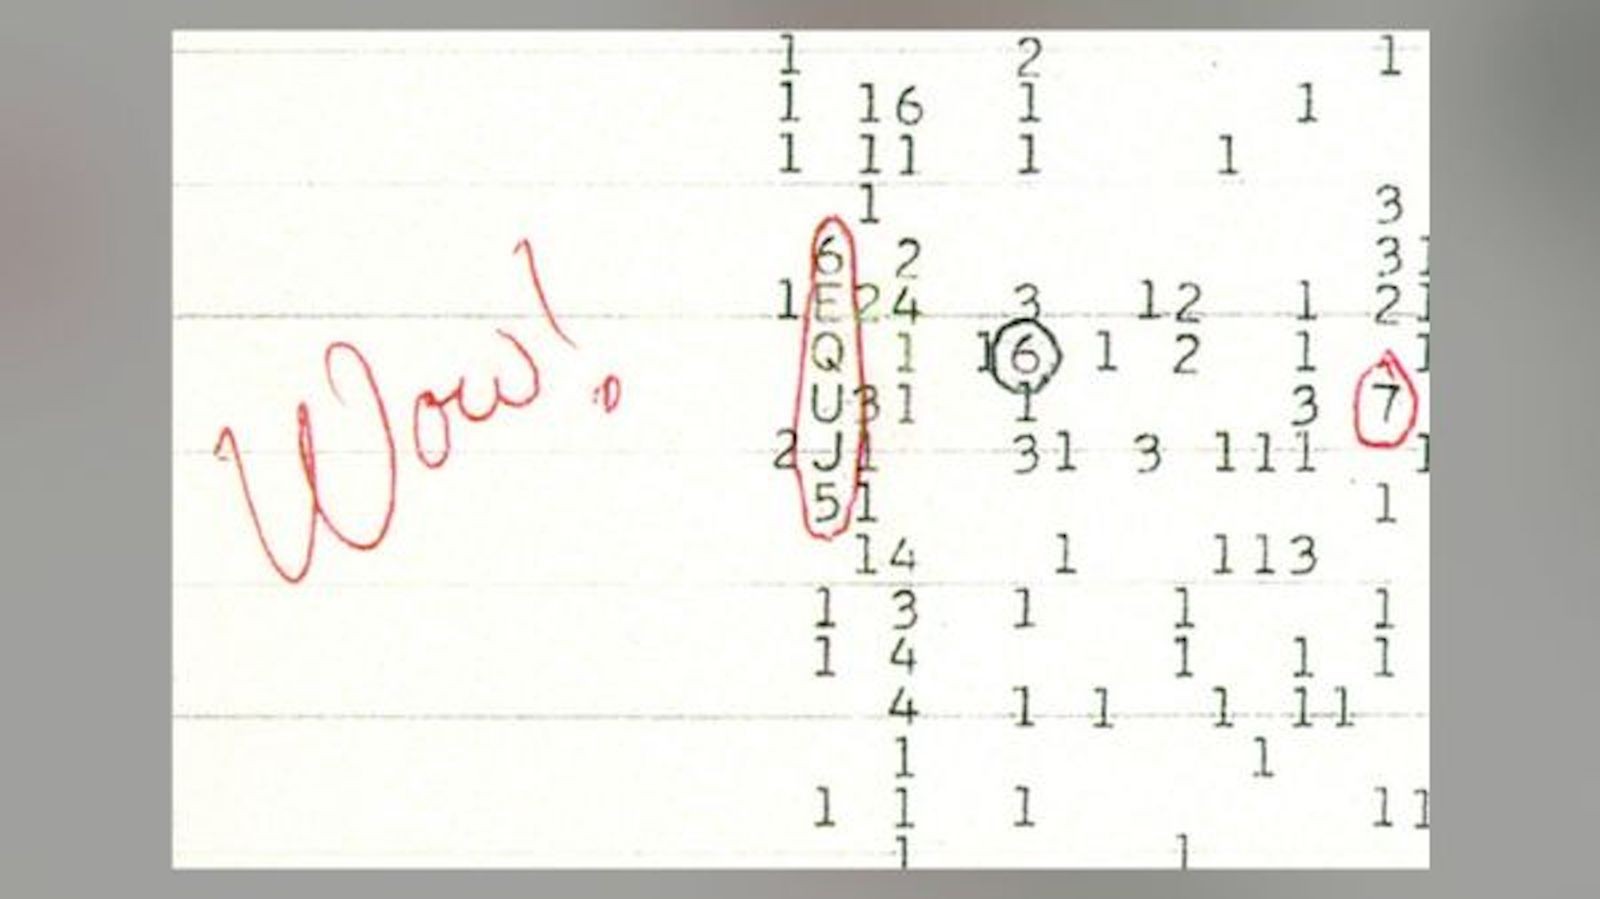 Wow!
1 2 1
1 16 1 1
1 11 1 1
1 3
6 2 31
1E24 3 12 1 21
Q 1 16 1 2 1 1
U31 1 3 7
2J1 31 3 111 1
51 1
14 1 113
1 3 1 1 1
1 4 1 1 1
4 1 1 1 11
1 1
1 1 1 11
1 1